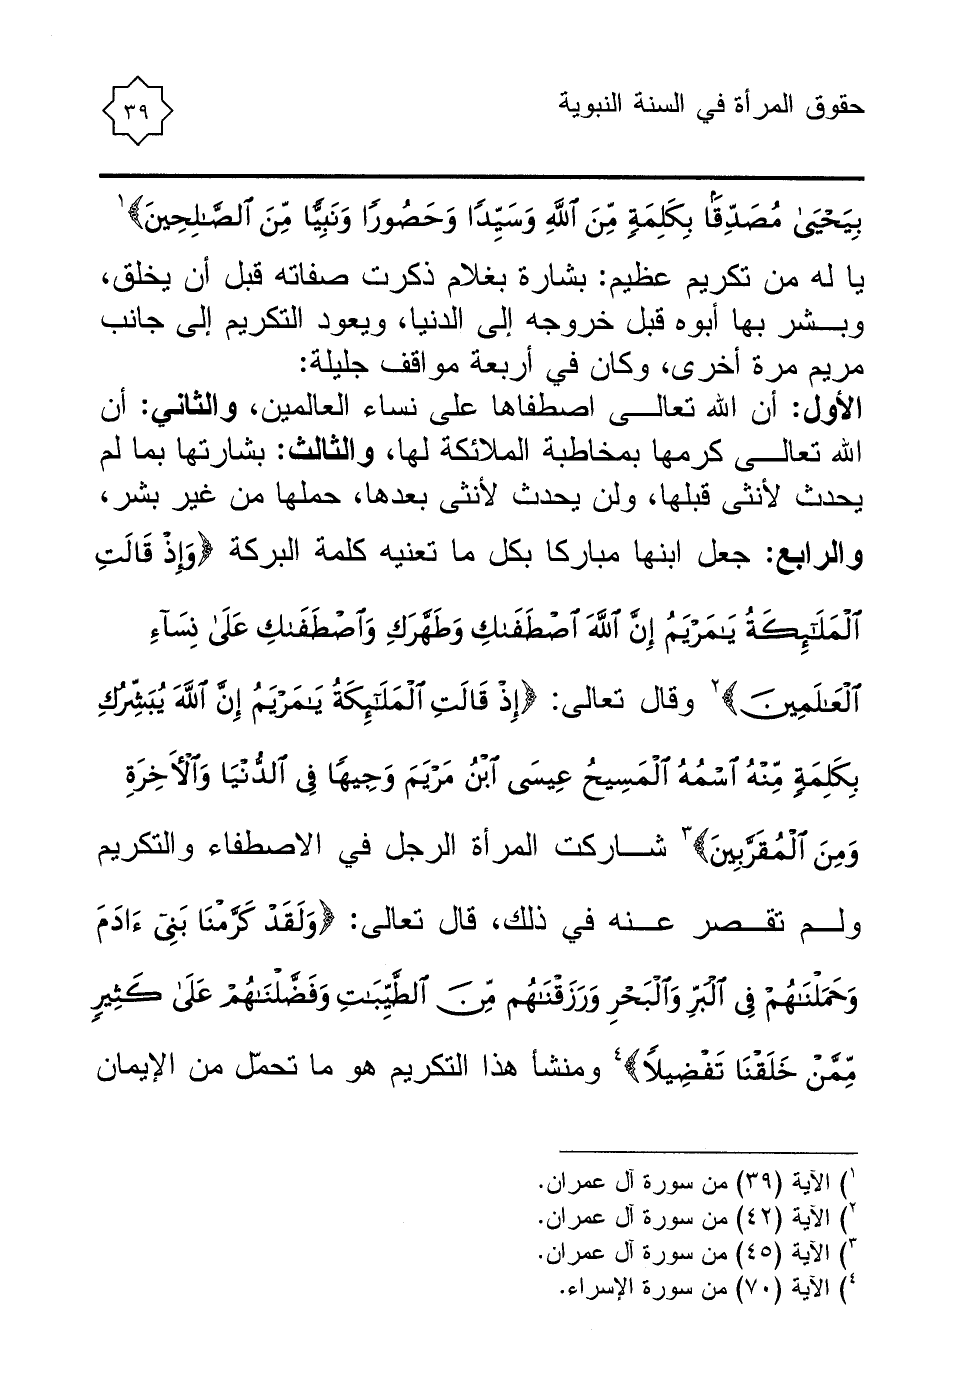 حقوق المرأة في السنة النبوية
٣٩
بِيَحْيَىٰ مُصَدِّقًۢا بِكَلِمَةٍ مِّنَ ٱللَّهِ وَسَيِّدًا وَحَصُورًا وَنَبِيًّا مِّنَ ٱلصَّـٰلِحِينَ﴾١
يا له من تكريم عظيم: بشارة بغلام ذكرت صفاته قبل أن يخلق،
وبـشر بها أبوه قبل خروجه إلى الدنيا، ويعود التكريم إلى جانب
مريم مرة أخرى، وكان في أربعة مواقف جليلة:
الأول: أن الله تعالـى اصطفاها على نساء العالمين، والثاني: أن
الله تعالـى كرمها بمخاطبة الملائكة لها، والثالث: بشارتها بما لم
يحدث لأنثى قبلها، ولن يحدث لأنثى بعدها، حملها من غير بشر،
والرابع: جعل ابنها مباركا بكل ما تعنيه كلمة البركة ﴿وَإِذْ قَالَتِ
ٱلْمَلَـٰٓئِكَةُ يَـٰمَرْيَمُ إِنَّ ٱللَّهَ ٱصْطَفَىٰكِ وَطَهَّرَكِ وَٱصْطَفَىٰكِ عَلَىٰ نِسَآءِ
ٱلْعَـٰلَمِينَ﴾٢ وقال تعالى: ﴿إِذْ قَالَتِ ٱلْمَلَـٰٓئِكَةُ يَـٰمَرْيَمُ إِنَّ ٱللَّهَ يُبَشِّرُكِ
بِكَلِمَةٍ مِّنْهُ ٱسْمُهُ ٱلْمَسِيحُ عِيسَى ٱبْنُ مَرْيَمَ وَجِيهًا فِى ٱلدُّنْيَا وَٱلْـَٔاخِرَةِ
وَمِنَ ٱلْمُقَرَّبِينَ﴾٣ شـاركت المرأة الرجل في الاصطفاء والتكريم
ولـم تقـصر عـنه في ذلك، قال تعالى: ﴿وَلَقَدْ كَرَّمْنَا بَنِىٓ ءَادَمَ
وَحَمَلْنَـٰهُمْ فِى ٱلْبَرِّ وَٱلْبَحْرِ وَرَزَقْنَـٰهُم مِّنَ ٱلطَّيِّبَـٰتِ وَفَضَّلْنَـٰهُمْ عَلَىٰ كَثِيرٍ
مِّمَّنْ خَلَقْنَا تَفْضِيلًا﴾٤ ومنشأ هذا التكريم هو ما تحمّل من الإيمان
١) الآية (٣٩) من سورة آل عمران.
٢) الآية (٤٢) من سورة آل عمران.
٣) الآية (٤٥) من سورة آل عمران.
٤) الآية (٧٠) من سورة الإسراء.